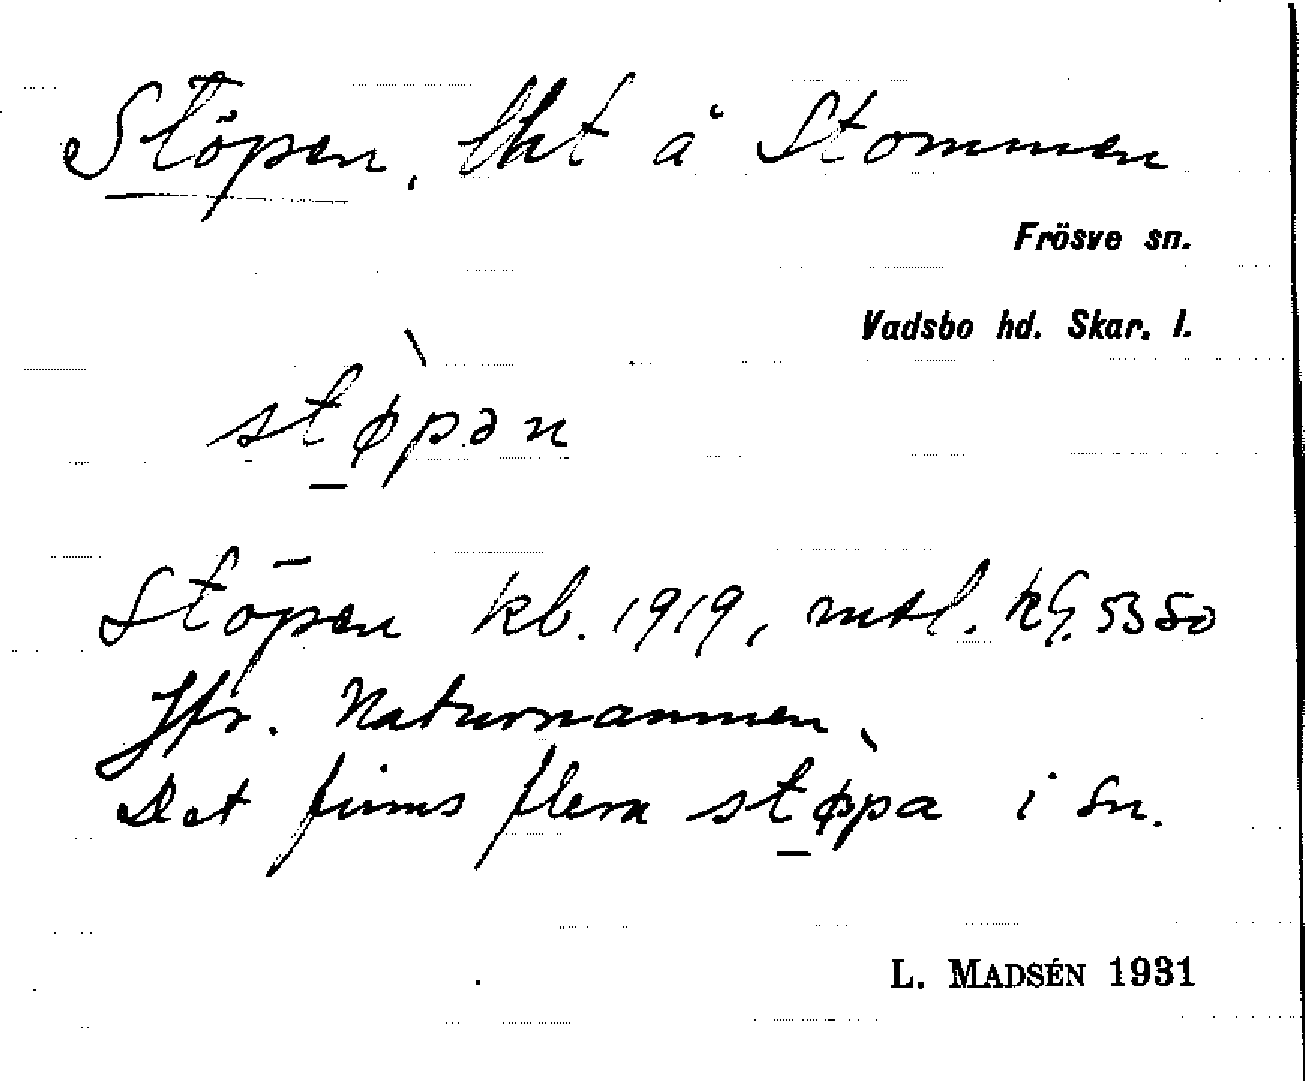 Stöpen, lht å Stommen
Frösve sn.
Vadsbo hd. Skar. l.
stø̀pən
Stöpen kb. 1919, mtl. kG. 5350
Jfr. Naturnamnen
Det finns flera stø̀pa i sn.
L. MADSÉN 1931